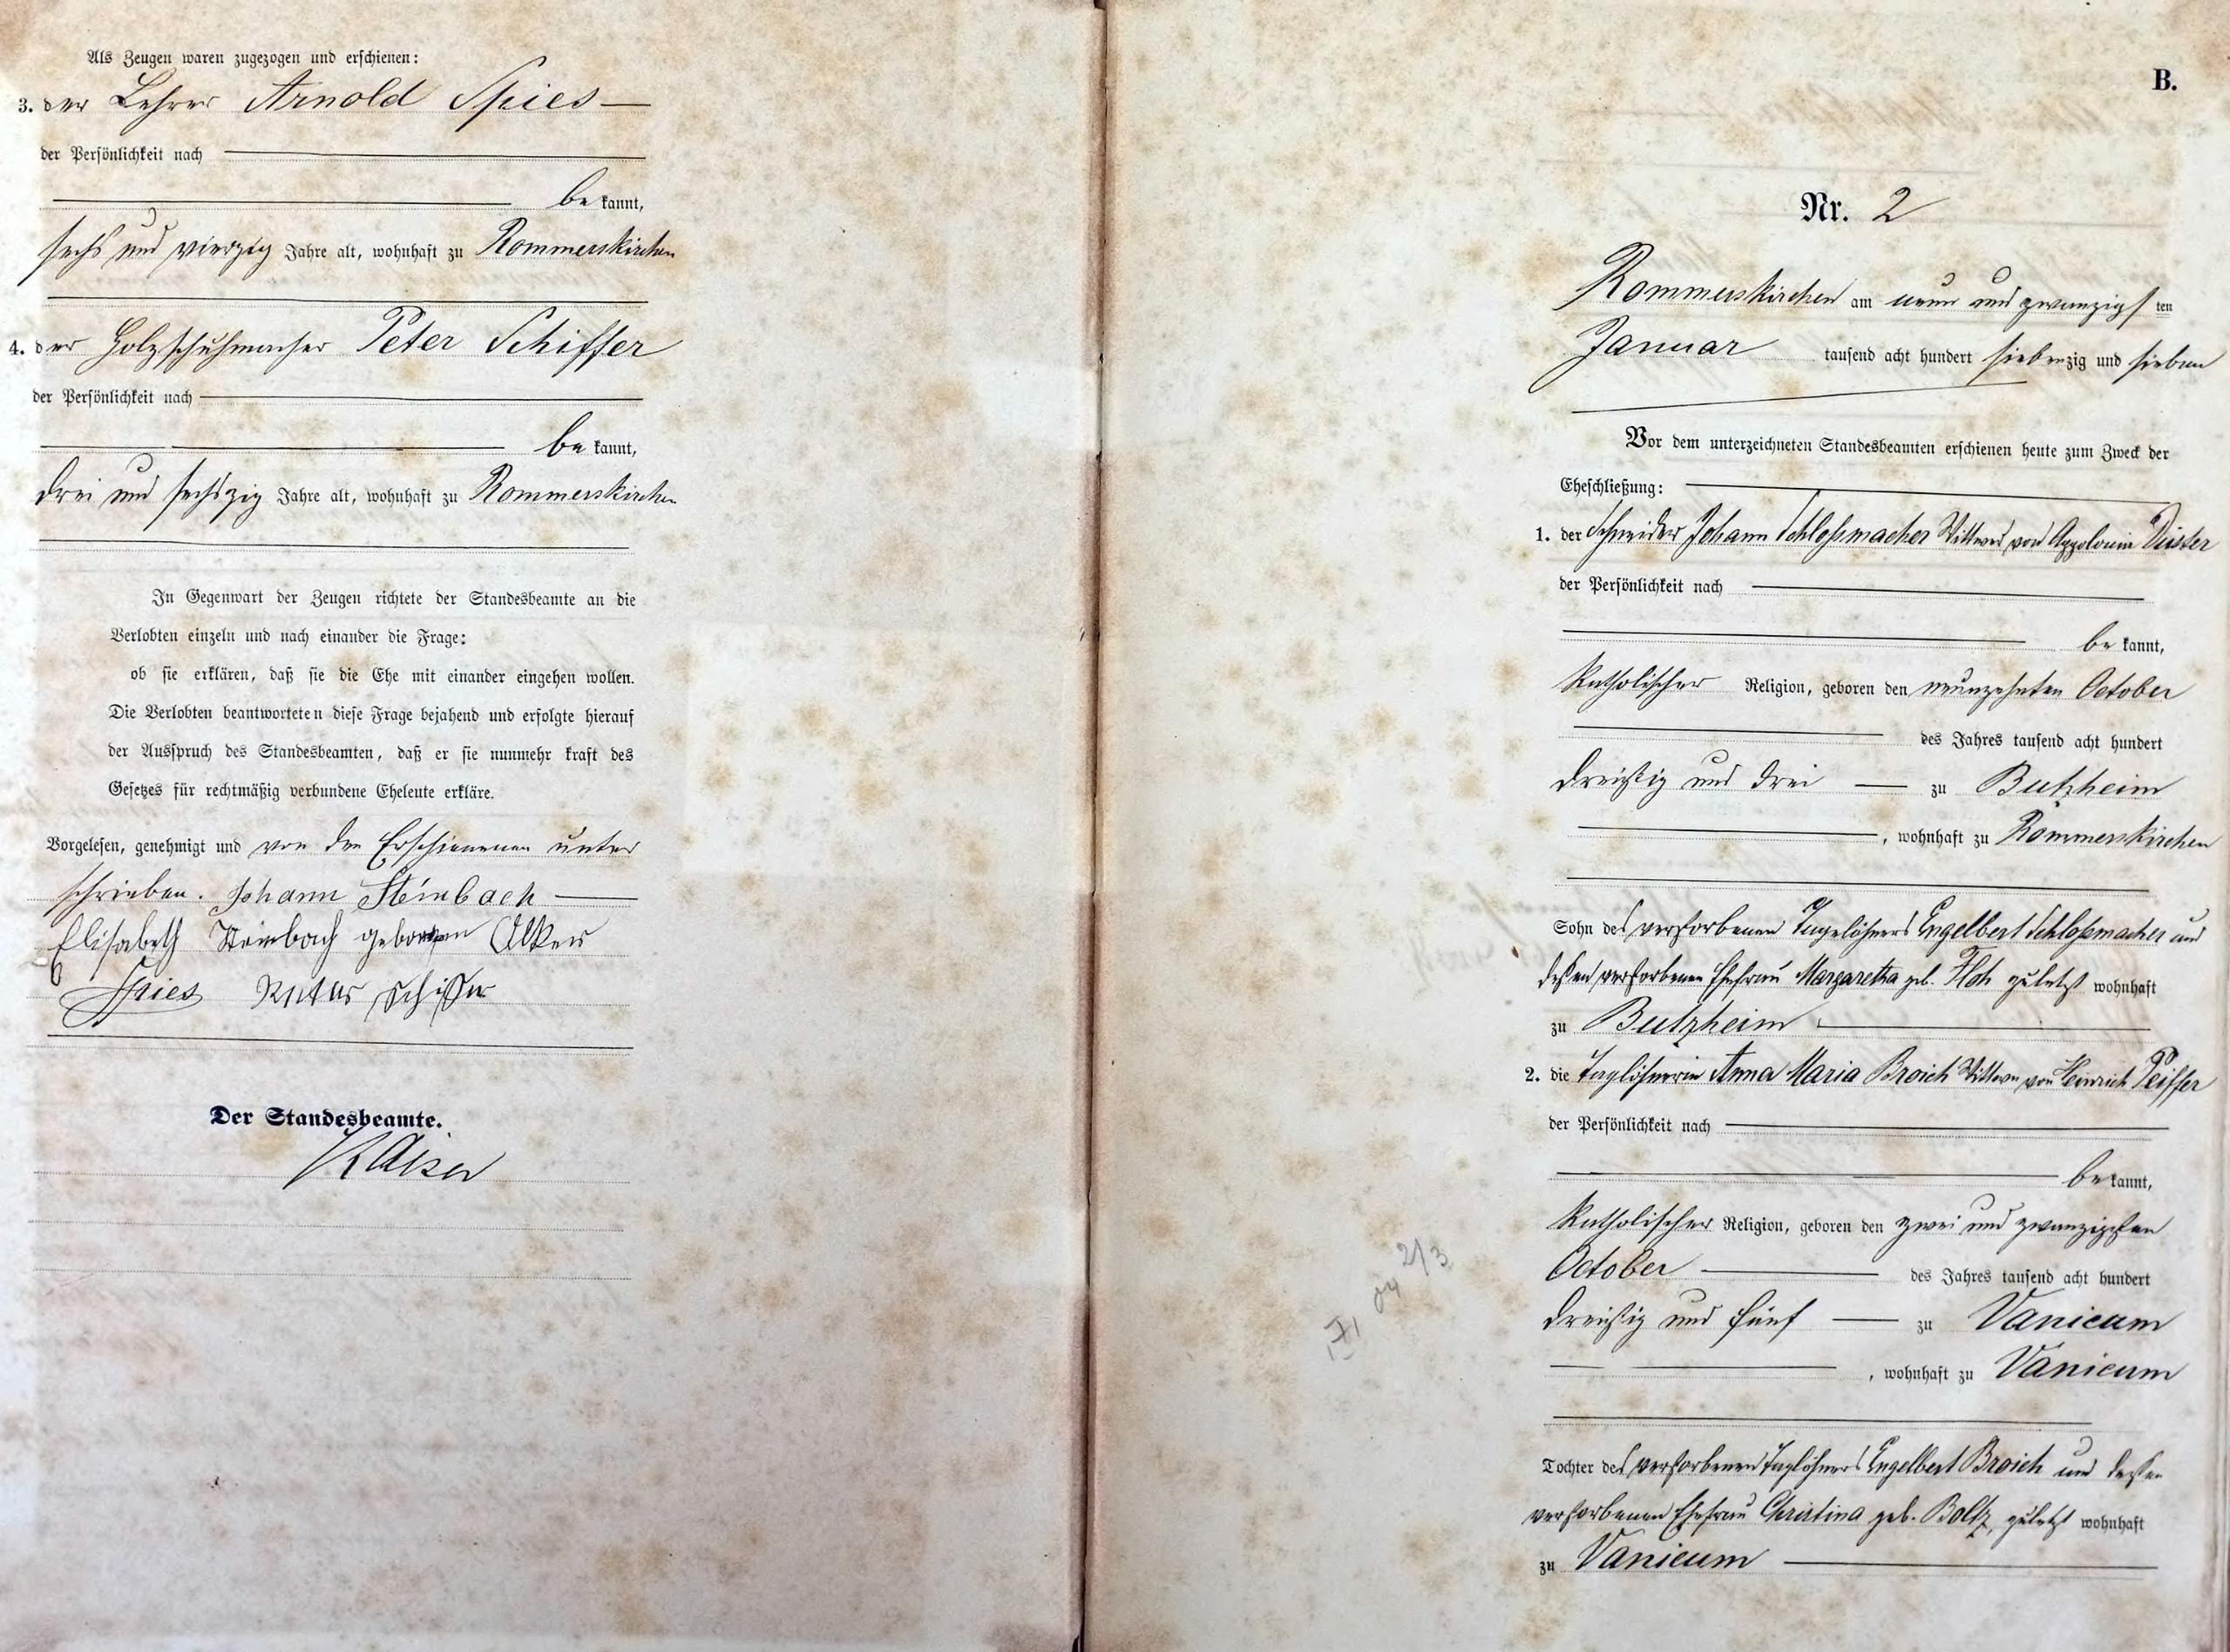 Als Zeugen waren zugezogen und erschienen:
3. der Lehrer Arnold Spies
der Persönlichkeit nach
bekannt,
sechs und vierzig Jahre alt, wohnhaft zu Rommerskirchen
4. der Holzschuhmacher Peter Schiffer
der Persönlichkeit nach
bekannt,
drei und sechszig Jahre alt, wohnhaft zu Rommerskirchen
In Gegenwart der Zeugen richtete der Standesbeamte an die
Verlobten einzeln und nach einander die Frage:
ob sie erklären, daß sie die Ehe mit einander eingehen wollen.
Die Verlobten beantworteten diese Frage bejahend und erfolgte hierauf
der Ausspruch des Standesbeamten, daß er sie nunmehr kraft des
Gesetzes für rechtmäßig verbundene Eheleute erkläre.
Vorgelesen, genehmigt und von den Erschienenen unter
schrieben. Johann Steinbach
Elisabeth Steinbach geboren
Spies Peter Schiffer
Der Standesbeamte.
Kaiser
B.
Nr. 2
Rommerskirchen am neun und zwanzigsten
Januar tausend acht hundert siebenzig und sieben
Vor dem unterzeichneten Standesbeamten erschienen heute zum Zweck der
Eheschließung:
1. der Schneider Johann Schloßmacher Wittwer von Appolonia
der Persönlichkeit nach
bekannt,
katholischer Religion, geboren den neunzehnten October
des Jahres tausend acht hundert
dreißig und drei zu Butzheim
, wohnhaft zu Rommerskirchen
Sohn des verstorbenen Tagelöhners Engelbert Schloßmacher und
dessen verstorbenen Ehefrau Margaretha geb. Floh zuletzt wohnhaft
zu Butzheim
2. die Taglöhnerin Anna Maria Broich Wittwe von Heinrich Peiffer
der Persönlichkeit nach
bekannt,
katholischer Religion, geboren den zwei und zwanzigsten
October des Jahres tausend acht hundert
dreißig und fünf zu Vanicum
, wohnhaft zu Vanicum
Tochter des verstorbenen Taglöhners Engelbert Broich und dessen
verstorbenen Ehefrau Christina geb. Boltz, zuletzt wohnhaft
zu Vanicum